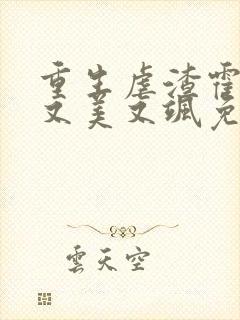 重生虐渣霍
又美又飒免
雲天空